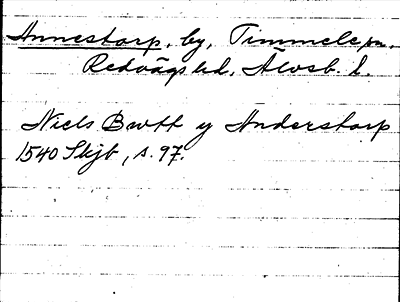 Annestorp, by, Timmele sn,
Redvägs hd, Älvsb. l.
Niels Bwtt y Anderstorp
1540 Skjb, s. 97.